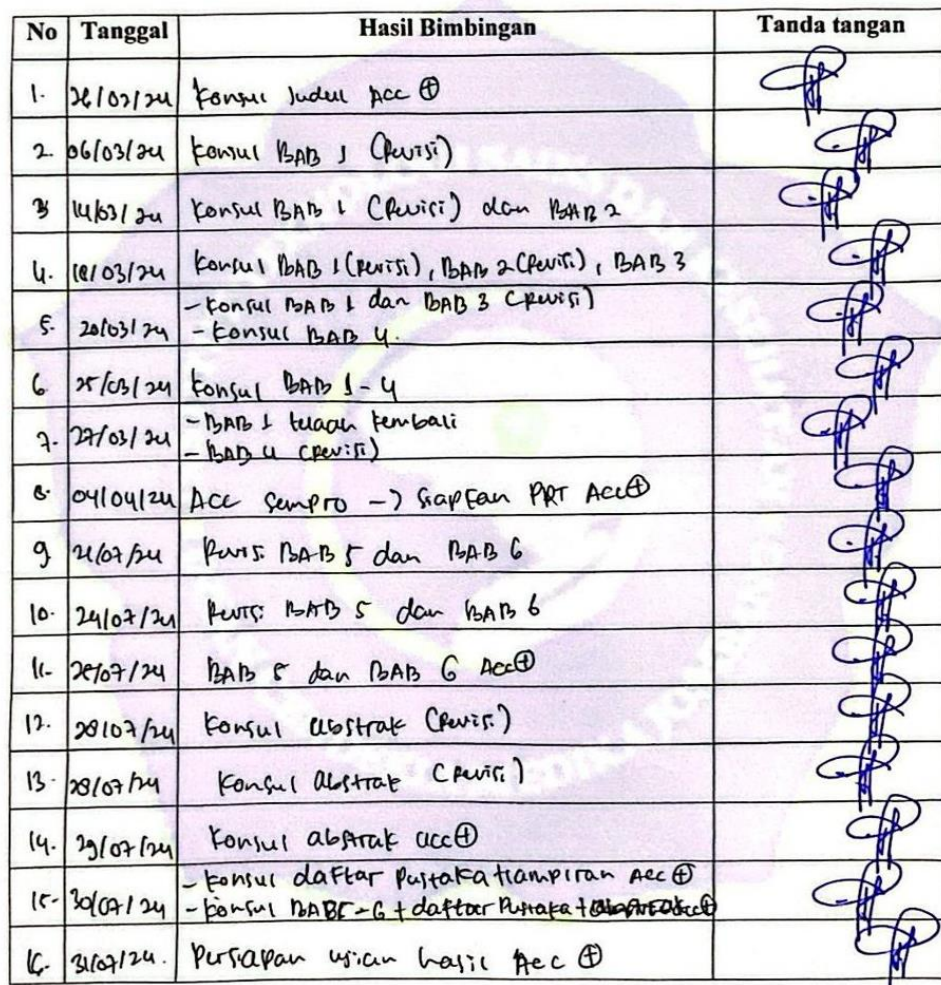 No Tanggal Hasil Bimbingan Tanda tangan
1. 28/02/24 Konsul Judul Acc ⊕
2. 06/03/24 Konsul BAB 1 (Revisi)
3 14/03/24 Konsul BAB 1 (Revisi) dan BAB 2
4. 18/03/24 Konsul BAB 1 (revisi), BAB 2 (revisi), BAB 3
5. 20/03/24 - Konsul BAB 1 dan BAB 3 (Revisi)
- Konsul BAB 4.
6. 25/03/24 Konsul BAB 1 - 4
7. 27/03/24 - BAB 1 telaah kembali
- BAB 4 (revisi)
8. 04/04/24 ACC sempro -> siapkan PPT Acc ⊕
9 21/07/24 Revisi BAB 5 dan BAB 6
10. 24/07/24 Revisi BAB 5 dan BAB 6
11. 25/07/24 BAB 5 dan BAB 6 Acc ⊕
12. 28/07/24 Konsul abstrak (Revisi)
13. 28/07/24 Konsul abstrak (Revisi)
14. 29/07/24 Konsul abstrak acc ⊕
15. 30/07/24 - Konsul daftar Pustaka + lampiran Acc ⊕
- Konsul BAB 5 - 6 + daftar Pustaka +
16. 31/07/24. Persiapan ujian hasil Acc ⊕